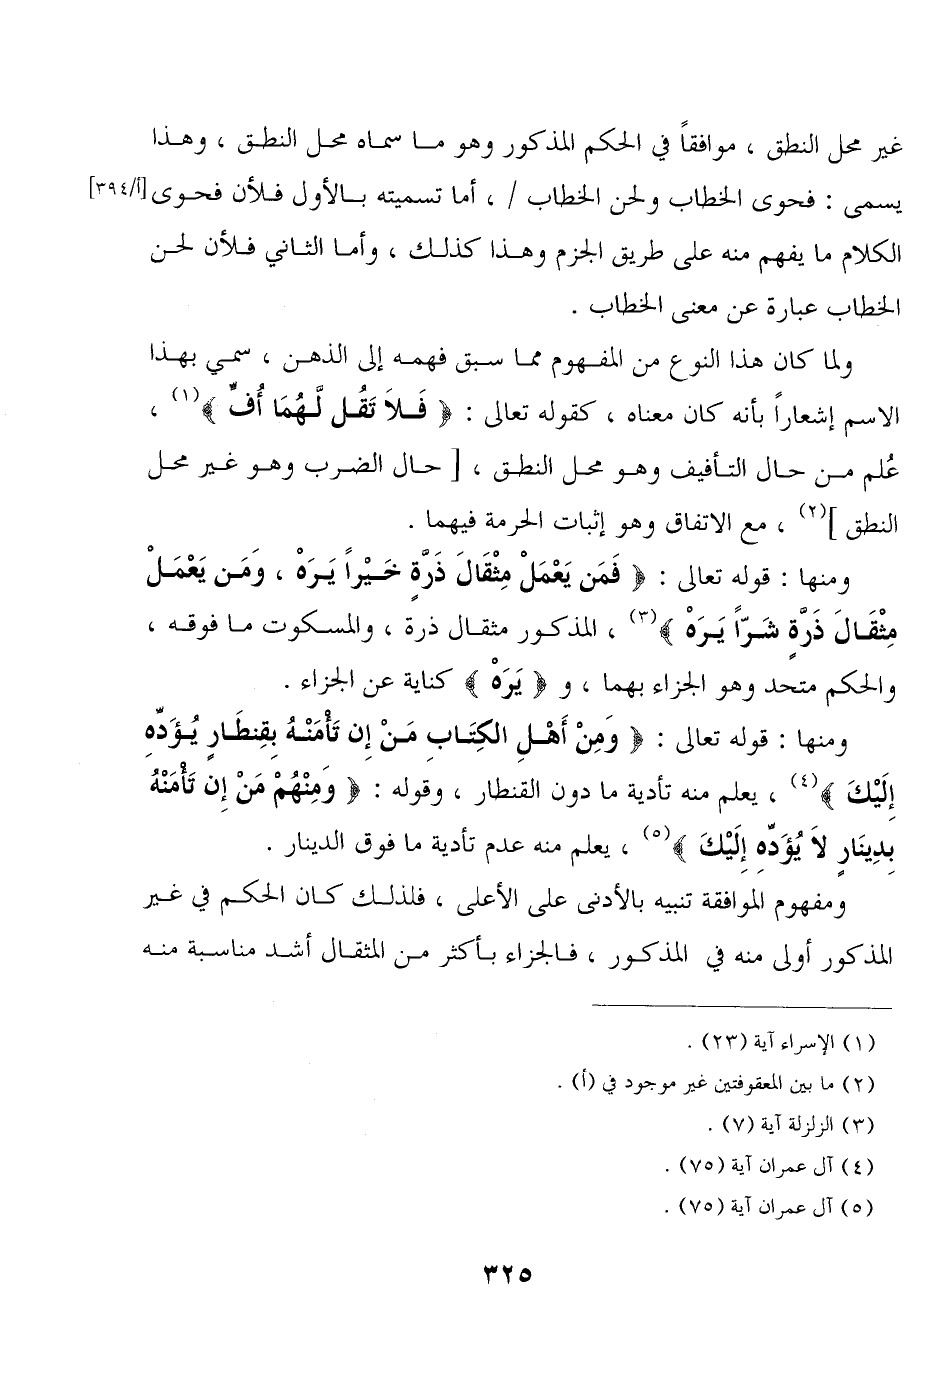 غير محل النطق ، موافقاً في الحكم المذكور وهو مـا سماه محـل النطـق ، وهـذا
يسمى : فحوى الخطاب ولحن الخطاب / ، أما تسميته بـالأول فـلأن فحـوى [٣٩٤/أ]
الكلام ما يفهم منه على طريق الجزم وهـذا كذلـك ، وأمـا الثـاني فـلأن لحـن
الخطاب عبارة عن معنى الخطاب .
ولما كان هذا النوع من المفهوم مما سبق فهمه إلى الذهـن ، سمي بهـذا
الاسم إشعاراً بأنه كان معناه ، كقوله تعالى : ﴿ فَـلاَ تَقُـل لَّهُمَا أُفٍّ ﴾(١) ،
عُلم مـن حـال التـأفيف وهـو محـل النطـق ، [ حـال الضـرب وهـو غـير محـل
النطق ](٢) ، مع الاتفاق وهو إثبات الحرمة فيهما .
ومنها : قوله تعالى : ﴿ فَمَن يَعْمَلْ مِثْقَالَ ذَرَّةٍ خَـيْراً يَـرَهُ ، وَمَـن يَعْمَـلْ
مِثْقَـالَ ذَرَّةٍ شَـرّاً يَـرَهُ ﴾(٣) ، المذكـور مثقـال ذرة ، والمسـكوت مـا فوقـه ،
والحكم متحد وهو الجزاء بهما ، و ﴿ يَرَهُ ﴾ كناية عن الجزاء .
ومنها : قوله تعالى : ﴿ وَمِنْ أَهْـلِ الكِتَـابِ مَـنْ إِن تَأْمَنْـهُ بِقِنطَـارٍ يُـؤَدِّهِ
إِلَيْكَ ﴾(٤) ، يعلم منه تأدية ما دون القنطار ، وقوله : ﴿ وَمِنْهُمْ مَنْ إِن تَأْمَنْهُ
بِدِينَارٍ لاَ يُؤَدِّهِ إِلَيْكَ ﴾(٥) ، يعلم منه عدم تأدية ما فوق الدينار .
ومفهوم الموافقة تنبيه بالأدنى على الأعلى ، فلذلـك كـان الحكـم في غـير
المذكور أولى منه في المذكـور ، فـالجزاء بـأكثر مـن المثقـال أشـد مناسـبة منـه
(١) الإسراء آية (٢٣) .
(٢) ما بين المعقوفتين غير موجود في (أ) .
(٣) الزلزلة آية (٧) .
(٤) آل عمران آية (٧٥) .
(٥) آل عمران آية (٧٥) .
٣٢٥